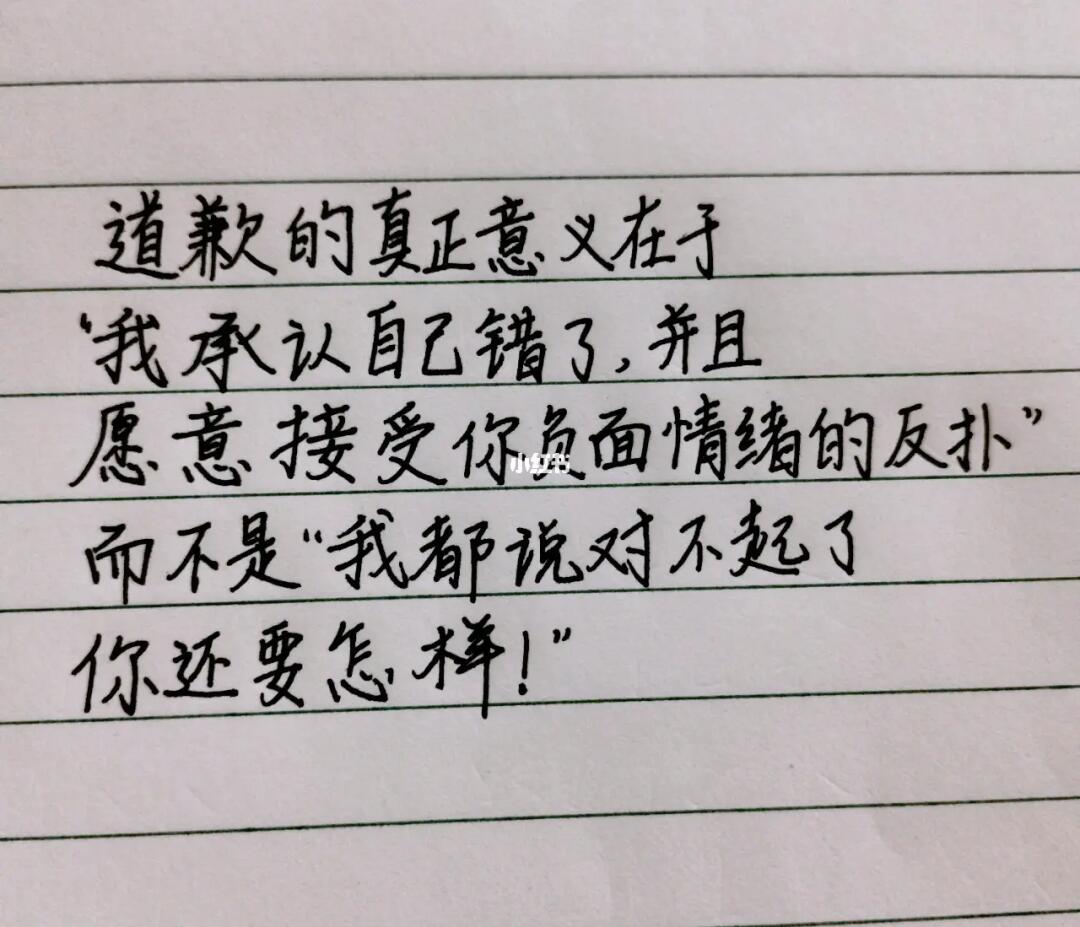 道歉的真正意义在于
“我承认自己错了,并且
愿意接受你负面情绪的反扑”
小红书
而不是“我都说对不起了
你还要怎样!”